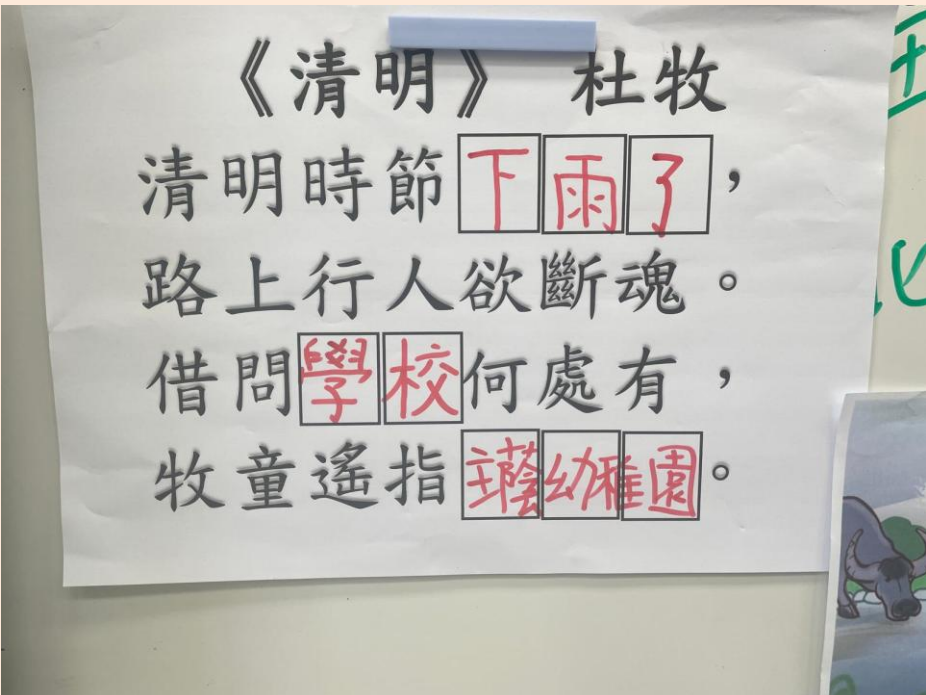 《清明》 杜牧
清明時節下雨了，
路上行人欲斷魂。
借問學校何處有，
牧童遙指幼稚園。